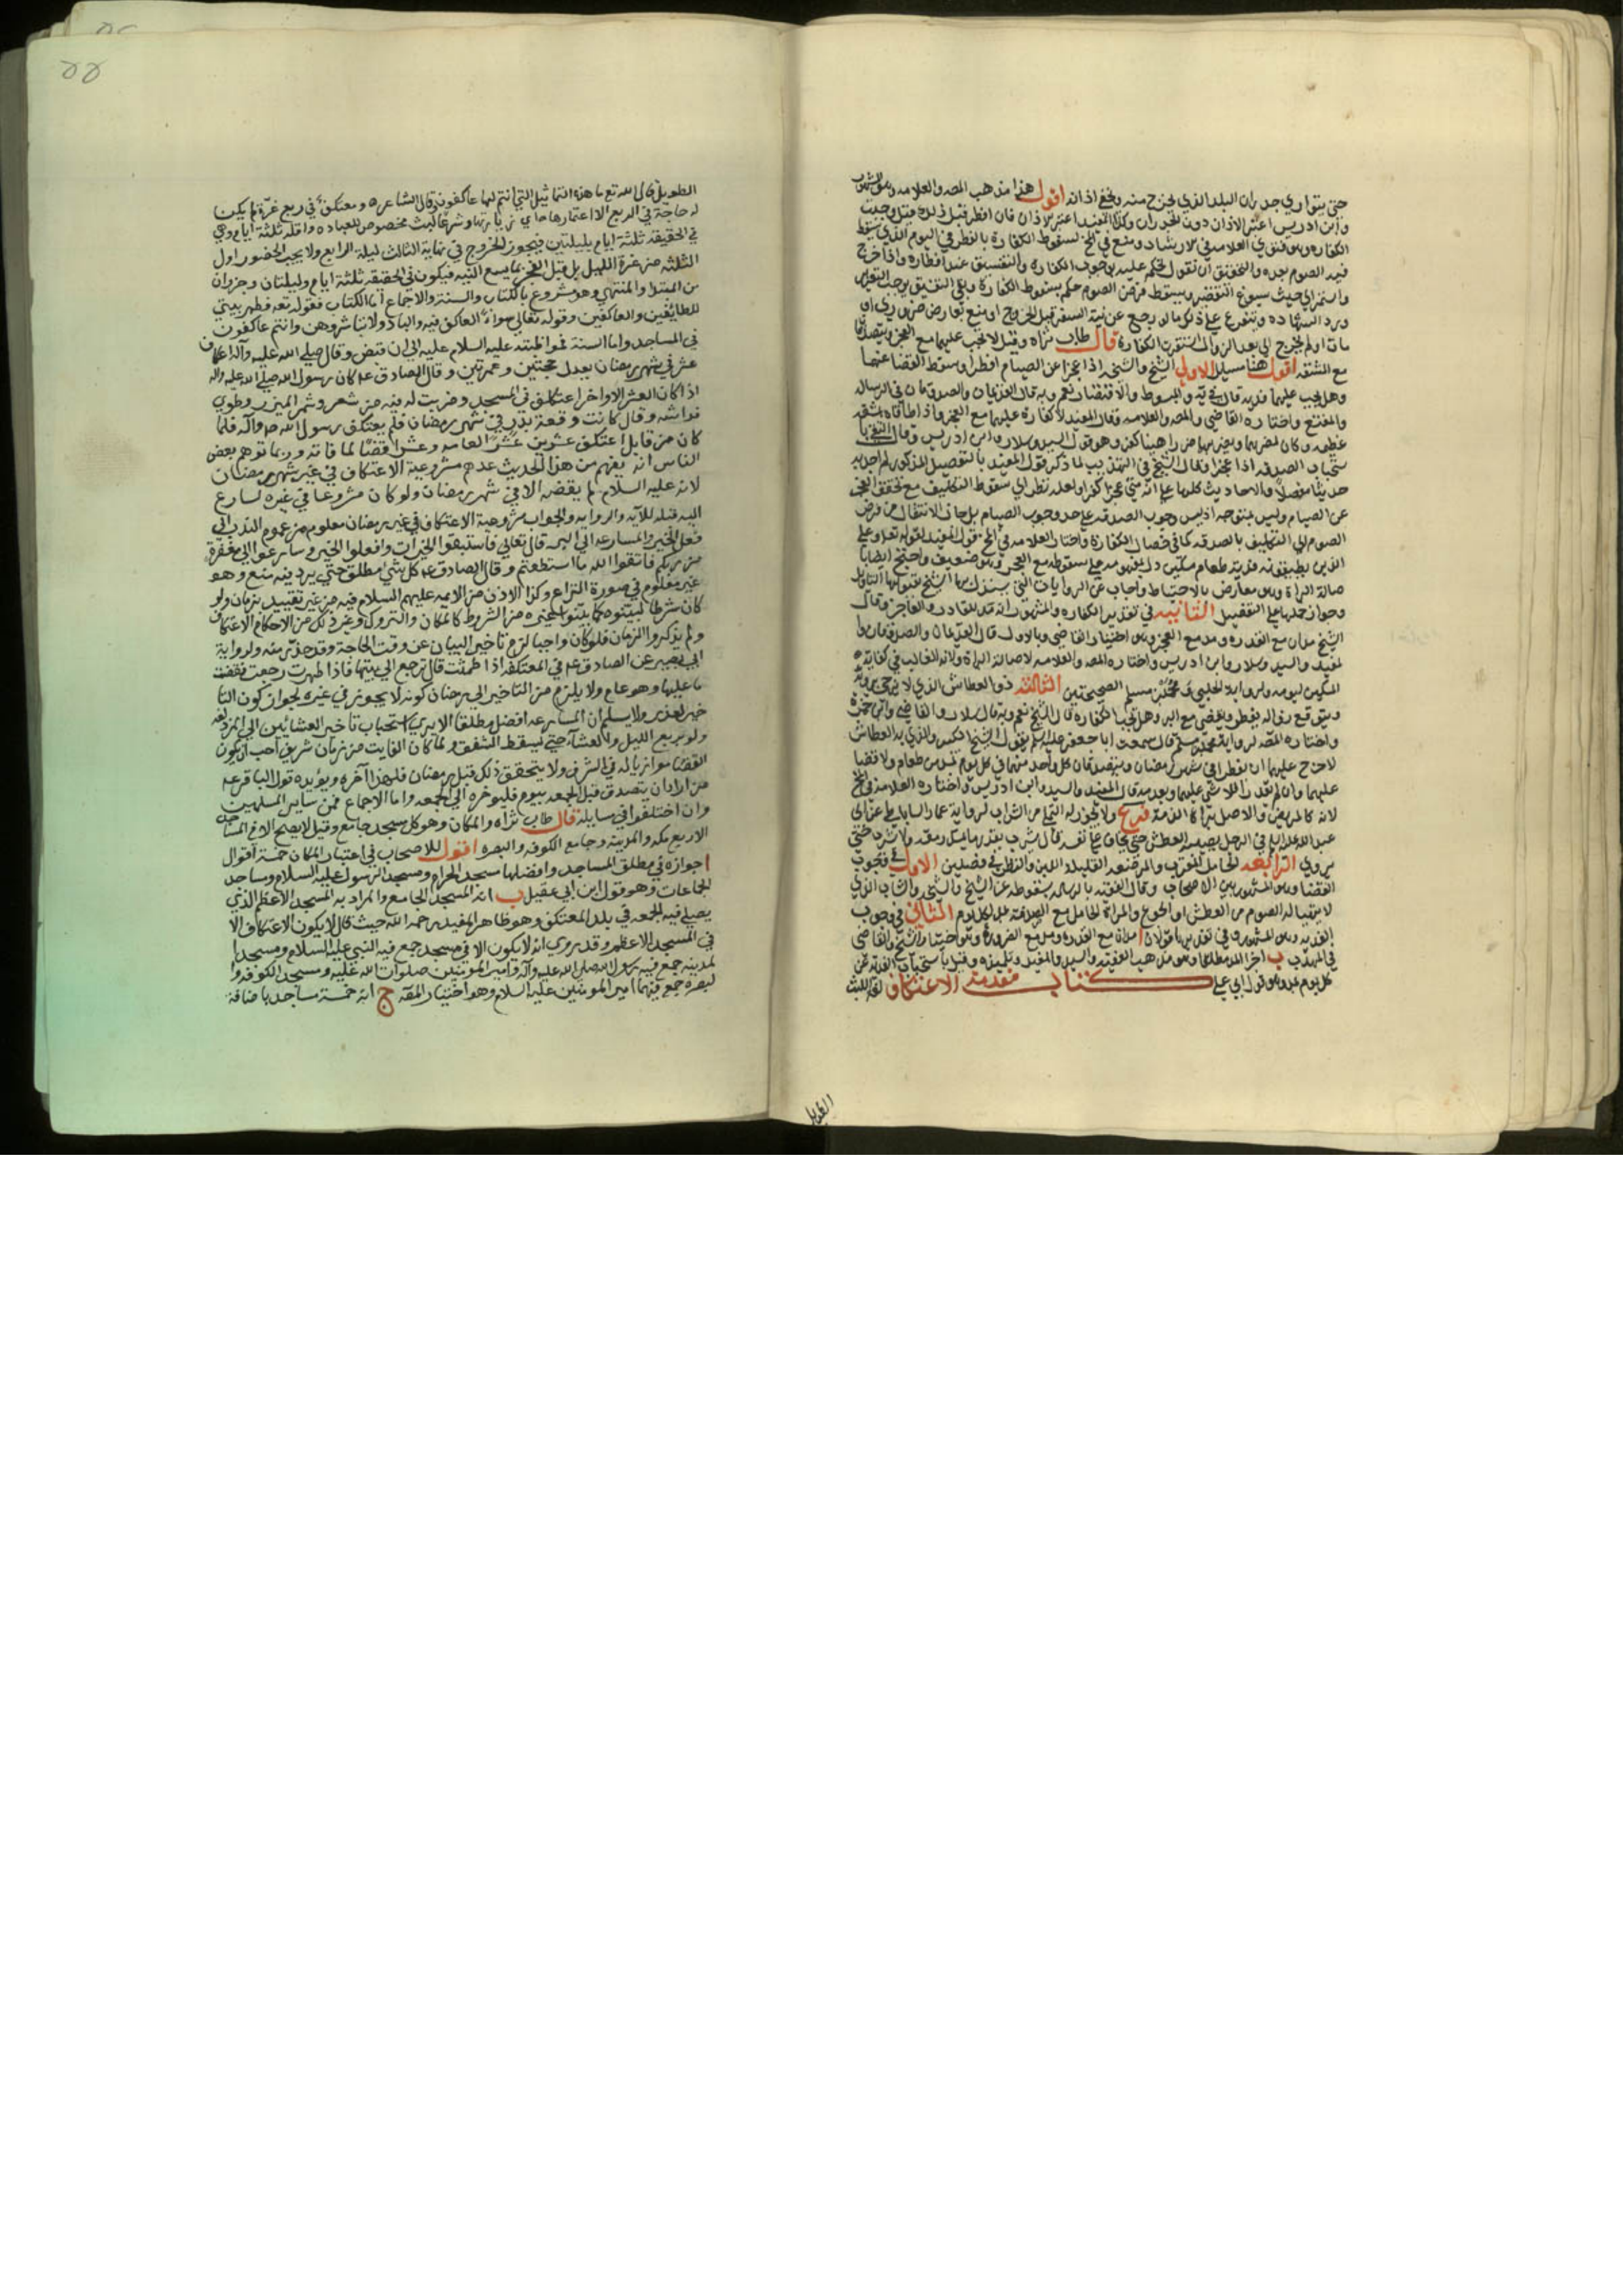 حتى يتواري جدران البلد الذي يخرج منه ويخفي اذانه اقول هذا مذهب المصه والعلامه وهو المشهور
وابن ادريس اعتبر الاذان دون الجدران وكذا المفيد اعتبر الاذان فان افطر قبل ذلك وجبت
الكفاره وهو فتوي العلامه في الارشاد ومنع في لسقوط الكفارة بالفطر في اليوم الذي يسقط
فيه الصوم بعده والتحقيق ان نقول نحكم عليه بوجوب الكفاره والتفسيق عند افطاره واذا خرج
واستمر الي حيث يسوغ التقصير ويسقط فرض الصوم حكم بسقوط الكفارة وبقي التفسيق
ورد الشهاده ويتفرع علي ذلك ما لو رجع عن نية السفر قبل الخروج او منع
مات او لم يخرج الي بعد الزوال استقرت الكفارة قال طاب ثراه وقيل لا تجب عليهما مع العجز ويتصدقان
مع المشقه اقول هنا مسايل الاولي الشيخ والشيخه اذا عجزا عن الصيام افطرا وسقط القضا عنهما
وهل يجب عليهما فديه قال في يه والمبسوط والاقتصاد نعم وبه قال القديمان والصدوقان في الرساله
والمقنع واختاره القاضي والمصه والعلامه وقال المفيد لا كفارة عليهما مع العجز واذا اطاقاه بمشقه
عظيمه وكان يضر بهما كفرا وهو قول السيد وسلار وابن ادريس وقال الشيخ با
ستحباب الصدقه اذا عجزا وقال الشيخ في التهذيب لما ذكر قول المفيد بالتفصيل المذكور لم اجد به
حديثا مفصلا والاحاديث كلها علي انه متي عجزا كفرا ولعله نظر الي سقوط التكليف مع تحقق العجز
عن الصيام وليس بمتوجه اذ ليس وجوب الصدقه علي حد وجوب الصيام بل جاز الانتقال من فرض
الصوم الي التكليف بالصدقه كما في خصال الكفارة واختار العلامه في قول المفيد لقوله تعه وعلي
الذين يطيقونه فدية طعام مسكين دل بمفهومه علي سقوطه مع العجز وهو ضعيف واحتج ايضا با
صالة البراة وهو معارض بالاحتياط واجاب عن الروايات التي استدل بها الشيخ بقبولها التاويل
وجواز حملها علي التفصيل الثانيه في تقدير الكفاره والمشهور انه مد للقادر والعاجز وقال
الشيخ مدان مع القدره ومد مع العجز وهو اختيار القاضي وبالاول قال القديمان والصدوقان وا
لمفيد والسيد وسلار وابن ادريس واختاره المصه والعلامه لاصالة البراة ولانه الغالب في كفاية
المسكين ليومه ولرواية الحلبي ومحمد بن مسلم الصحيحتين الثالثه ذو العطاش الذي لا يرجي برؤه
ويتوقع زواله يفطر ويقضي مع البر وهل تجب الكفاره قال الشيخ نعم وبه قال سلار والقاضي وابن حمزة
واختاره المصه لرواية محمد بن مسلم قال سمعت ابا جعفر عليه السلم يقول الشيخ الكبير والذي به العطاش
لا حرج عليهما ان يفطرا في شهر رمضان ويتصدقان كل واحد منهما في كل يوم بمد من طعام ولا قضا
عليهما وان لم يقدرا فلا شي عليهما وبعدمه قال المفيد والسيد وابن ادريس واختاره العلامة في
لانه كالمريض والاصل براة الذمه فرع ولا يجوز له التملي من الشراب لرواية عمار الساباطي عن ابي
عبد الله عليه السلم في الرجل يصيبه العطش حتي يخاف علي نفسه قال يشرب بقدر ما يمسك رمقه ولا يشرب حتي
يروي الرابعه الحامل المقرب والمرضعه القليلة اللبن والنظر في فصلين الاول في وجوب
القضا وهو المشهور بين الاصحاب وقال الفقيه بالرساله بسقوطه عن الشيخ والشيخه والشاب الذي
لا يتهيا له الصوم من العطش او الجوع والمراة الحامل مع الصدقه بمد لكل يوم الثاني في وجوب
الفديه وهو المشهور وفي تقديرها قولان ا مدان مع القدره ومد مع الضروره وهو اختيار الشيخ والقاضي
في المهذب ب اجزا المد مطلقا وهو مذهب الفقيه والسيد والمفيد وتلميذه وقيل باستحباب الفديه عن
كل يوم بمد وهو قول ابي علي كتاب مقدمة الاعتكاف لغه اللبث
الطويل قال الله تع ما هذه التماثيل التي انتم لها عاكفون قال الشاعره ومعتكف في ربع غرة لم يكن
له حاجة في الربع الا اعتمارها اي زيارتها وشرعا لبث مخصوص للعباده واقله ثلثة ايام وهي
في الحقيقه ثلثة ايام بليلتين فيجوز الخروج في نهاية الثالث ليلة الرابع ولا يجب الحضور اول
الثلثه من غرة الليل بل قبل الفجر بما يسع النيه فيكون في الحقيقه ثلثة ايام وليلتان وجزوان
من المبتدا والمنتهي وهو مشروع بالكتاب والسنة والاجماع اما الكتاب فقوله تعه وطهر بيتي
للطائفين والعاكفين وقوله تعالي سواء العاكف فيه والباد ولا تباشروهن وانتم عاكفون
في المساجد واما السنة فمواظبته عليه السلام عليه الي ان قبض وقال صلي الله عليه وآله اعتكاف
عشر في شهر رمضان يعدل حجتين وعمرتين وقال الصادق عه كان رسول الله صلي الله عليه وآله
اذا كان العشر الاواخر اعتكف في المسجد وضربت له قبه من شعر وشمر الميزر وطوي
فراشه وقال كانت وقعة بدر في شهر رمضان فلم يعتكف رسول الله صه وآله فلما
كان من قابل اعتكف عشرين عشرا لعامه وعشرا قضا لما فاته وربما توهم بعض
الناس انه يفهم من هذا الحديث عدم مشروعية الاعتكاف في غير شهر رمضان
لانه عليه السلام لم يقضه الا في شهر رمضان ولو كان مشروعا في غيره لسارع
اليه قبله للآيه والروايه والجواب مشروعية الاعتكاف في غير رمضان معلوم من عموم الندب الي
فعل الخير والمسارعه اليه قال تعالي فاستبقوا الخيرات وافعلوا الخير وسارعوا الي مغفرة
من ربكم فاتقوا الله ما استطعتم وقال الصادق عه كل شي مطلق حتي يرد فيه منع وهو
غير معلوم في صورة النزاع وكذا الاذن من الايمه عليهم السلام فيه من غير تقييد بزمان ولو
كان شرطا لبينوه كما بينوا غيره من الشروط كالمكان والتروك وغير ذلك من الاحكام الاعتكاف
ولم يذكروا الزمان فلو كان واجبا لزم تاخير البيان عن وقت الحاجة وقد حذر منه ولرواية
ابي بصير عن الصادق عه في المعتكفه اذا طمثت قال ترجع الي بيتها فاذا طهرت رجعت فقضت
ما عليها وهو عام ولا يلزم من التاخير الي رمضان كونه لا يجوز في غيره لجواز كون التا
خير لعذر ولا يسلم ان المسارعه افضل مطلقا الا يري استحباب تاخير العشائين الي المزدلفه
ولو بربع الليل والعشاء حتي يسقط الشفق ولما كان الفايت من زمان شريف احب ان يكون
القضا موازيا له في الشرف ولا يتحقق ذلك قبل رمضان فلهذا آخره ويؤيده قول الباقر عه
من اراد ان يتصدق قبل الجمعه بيوم فليوخره الي الجمعه واما الاجماع فمن ساير المسلمين
وان اختلفوا في مسايله قال طاب ثراه والمكان وهو كل مسجد جامع وقيل لا يصح الا في المساجد
الاربع مكه والمدينة وجامع الكوفه والبصره اقول للاصحاب في اعتبار المكان خمسة اقوال
ا جوازه في مطلق المساجد وافضلها مسجد الحرام ومسجد الرسول عليه السلام ومساجد
الجماعات وهو قول ابن ابي عقيل ب انه المسجد الجامع والمراد به المسجد الاعظم الذي
يصلي فيه الجمعه في بلد المعتكف وهو ظاهر المفيد رحمه الله حيث قال لا يكون الاعتكاف الا
في المسجد الاعظم وقد روي انه لا يكون الا في مسجد جمع فيه النبي عليه السلام ومسجد ا
لمدينه جمع فيه رسول الله صلي الله عليه وآله وامير المومنين صلوات الله عليه ومسجد الكوفه وا
لبصره جمع فيهما امير المومنين عليه السلام وهو اختيار المصه ج انه خمسة مساجد باضافة